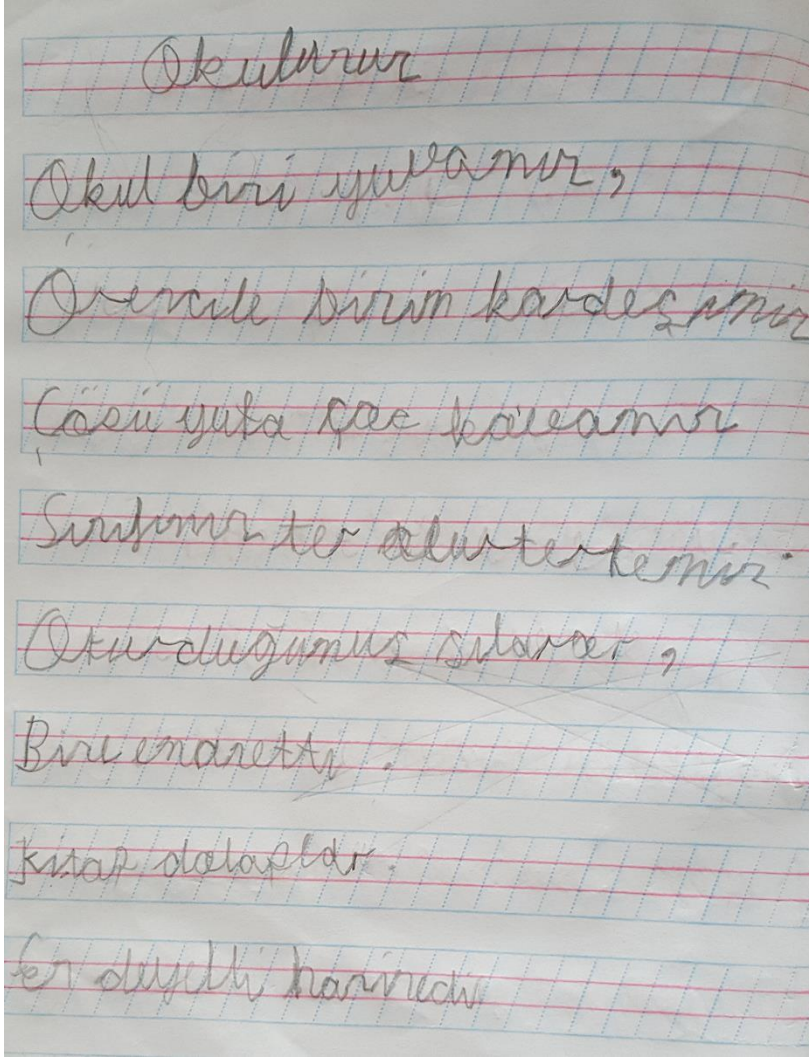 Okulurur
Okul biri yuvamır,
Örencile birim kardeşimir
Gösü yuta çae kaueamır
Sınıfımır ter olur tertemir.
Oturduğumus sılarar,
Bire emanetti.
kitap dolaplar.
En deyelli harinedi